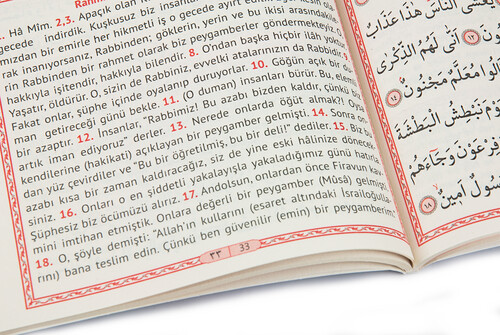 Rahm
1. Hâ Mîm. 2,3. Apaçık olan
gecede indirdik. Kuşkusuz biz insanları
mızdan bir emirle her hikmetli iş o gecede ayırt edilir
rak inanıyorsanız, Rabbinden; göklerin, yerin ve bu ikisi arasındakile
rin Rabbinden bir rahmet olarak biz peygamberler göndermekteyiz. O
hakkıyla işitendir, hakkıyla bilendir. 8. O'ndan başka hiçbir ilâh yoktur
Yaşatır, öldürür. O, sizin de Rabbiniz, evvelki atalarınızın da Rabbidir.
Fakat onlar, şüphe içinde oyalanıp duruyorlar. 10. Göğün açık bir du
man getireceği günü bekle. 11. (O duman) insanları bürür. Bu, elem
bir azaptır. 12. İnsanlar, "Rabbimiz! Bu azabı bizden kaldır, çünkü biz
artık iman ediyoruz" derler. 13. Nerede onlarda öğüt almak?! Oysa
kendilerine (hakikati) açıklayan bir peygamber gelmişti. 14. Sonra on
dan yüz çevirdiler ve "Bu bir öğretilmiş, bu bir deli!" dediler. 15. Biz
azabı kısa bir zaman kaldıracağız, siz de yine eski hâlinize dönecek
siniz. 16. Onları o en şiddetli yakalayışla yakaladığımız günü hatırla
Şüphesiz biz öcümüzü alırız. 17. Andolsun, onlardan önce Firavun kav
mini imtihan etmiştik. Onlara değerli bir peygamber (Mûsâ) gelmişti
18. O, şöyle demişti: "Allah'ın kullarını (esaret altındaki İsrailoğulla
rını) bana teslim edin. Çünkü ben güvenilir (emin) bir peygamberim;
٣٣ 33
يَغْشَى النَّاسَ هٰذَا عَذَابٌ
١٢ اَنّٰى لَهُمُ الذِّكْرٰى
مُعَلَّمٌ مَجْنُونٌ
١٤
نَبْطِشُ الْبَطْشَةَ
فِرْعَوْنَ وَجَٓاءَهُمْ
رَسُولٌ اَمِينٌ
١٨